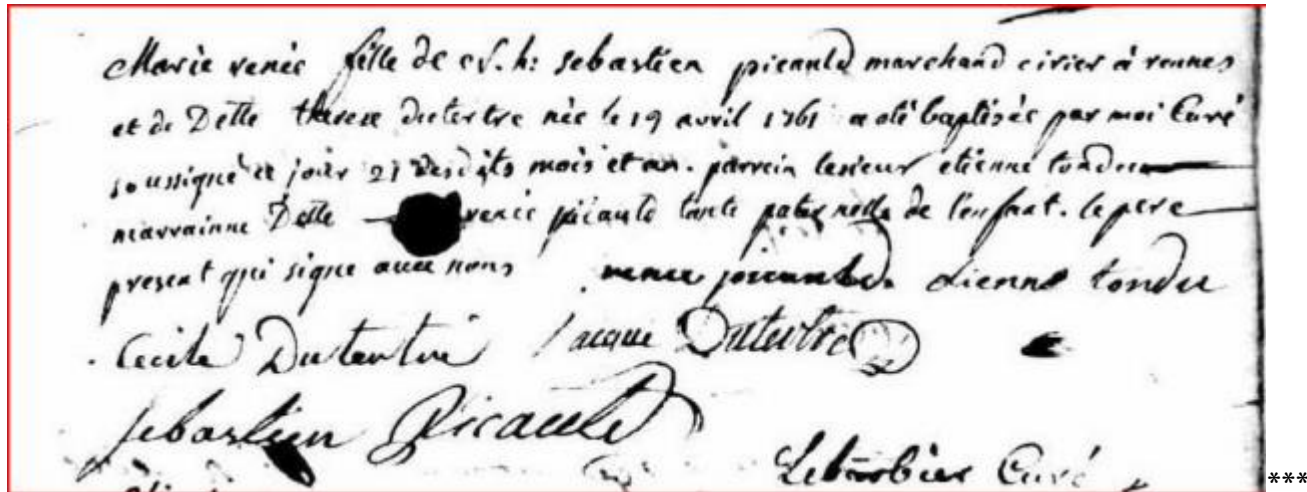 Marie renée fille de h: sebastien picault marchand cirier à rennes
et de Delle therese dutertre née le 19 avril 1761 a été baptisée par moi Curé
soussigné ce jour 21 desdits mois et an. parrein lesieur etienne tondu
marrainne Delle renée picault tante paternelle de l'enfant. le pere
present qui signe avec nous renee picault. etienne tondu
Cecile Dutertre Jacque Dutertre
sebastien Picault
Lebarbier Curé
***